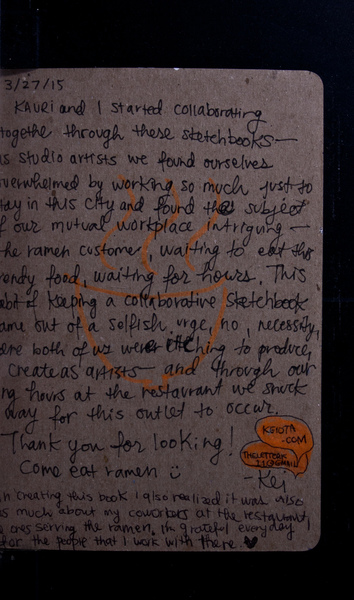 3/27/15
KAURI and I started collaborating
togethe through these sketchbooks—
as studio artists we found ourselves
overwhelmed by working so much just to
stay in this city and found the subject
of our mutual workplace intriguing —
the ramen customer, waiting to eat this
trendy food, waiting for hours. This
habit of keeping a collaborative sketchbook
came out of a selfish urge, no, necessity,
where both of us were itching to produce,
create as artists — and through our
long hours at the restaurant we snuck
away for this outlet to occur.
Thank you for looking!
Come eat ramen
KEIOTA
.COM
THELETTERK
-Kei
In creating this book I also realized it was also
as much about my coworkers at the restaurant,
ones serving the ramen, I'm grateful everyday
for the people that I work with there.